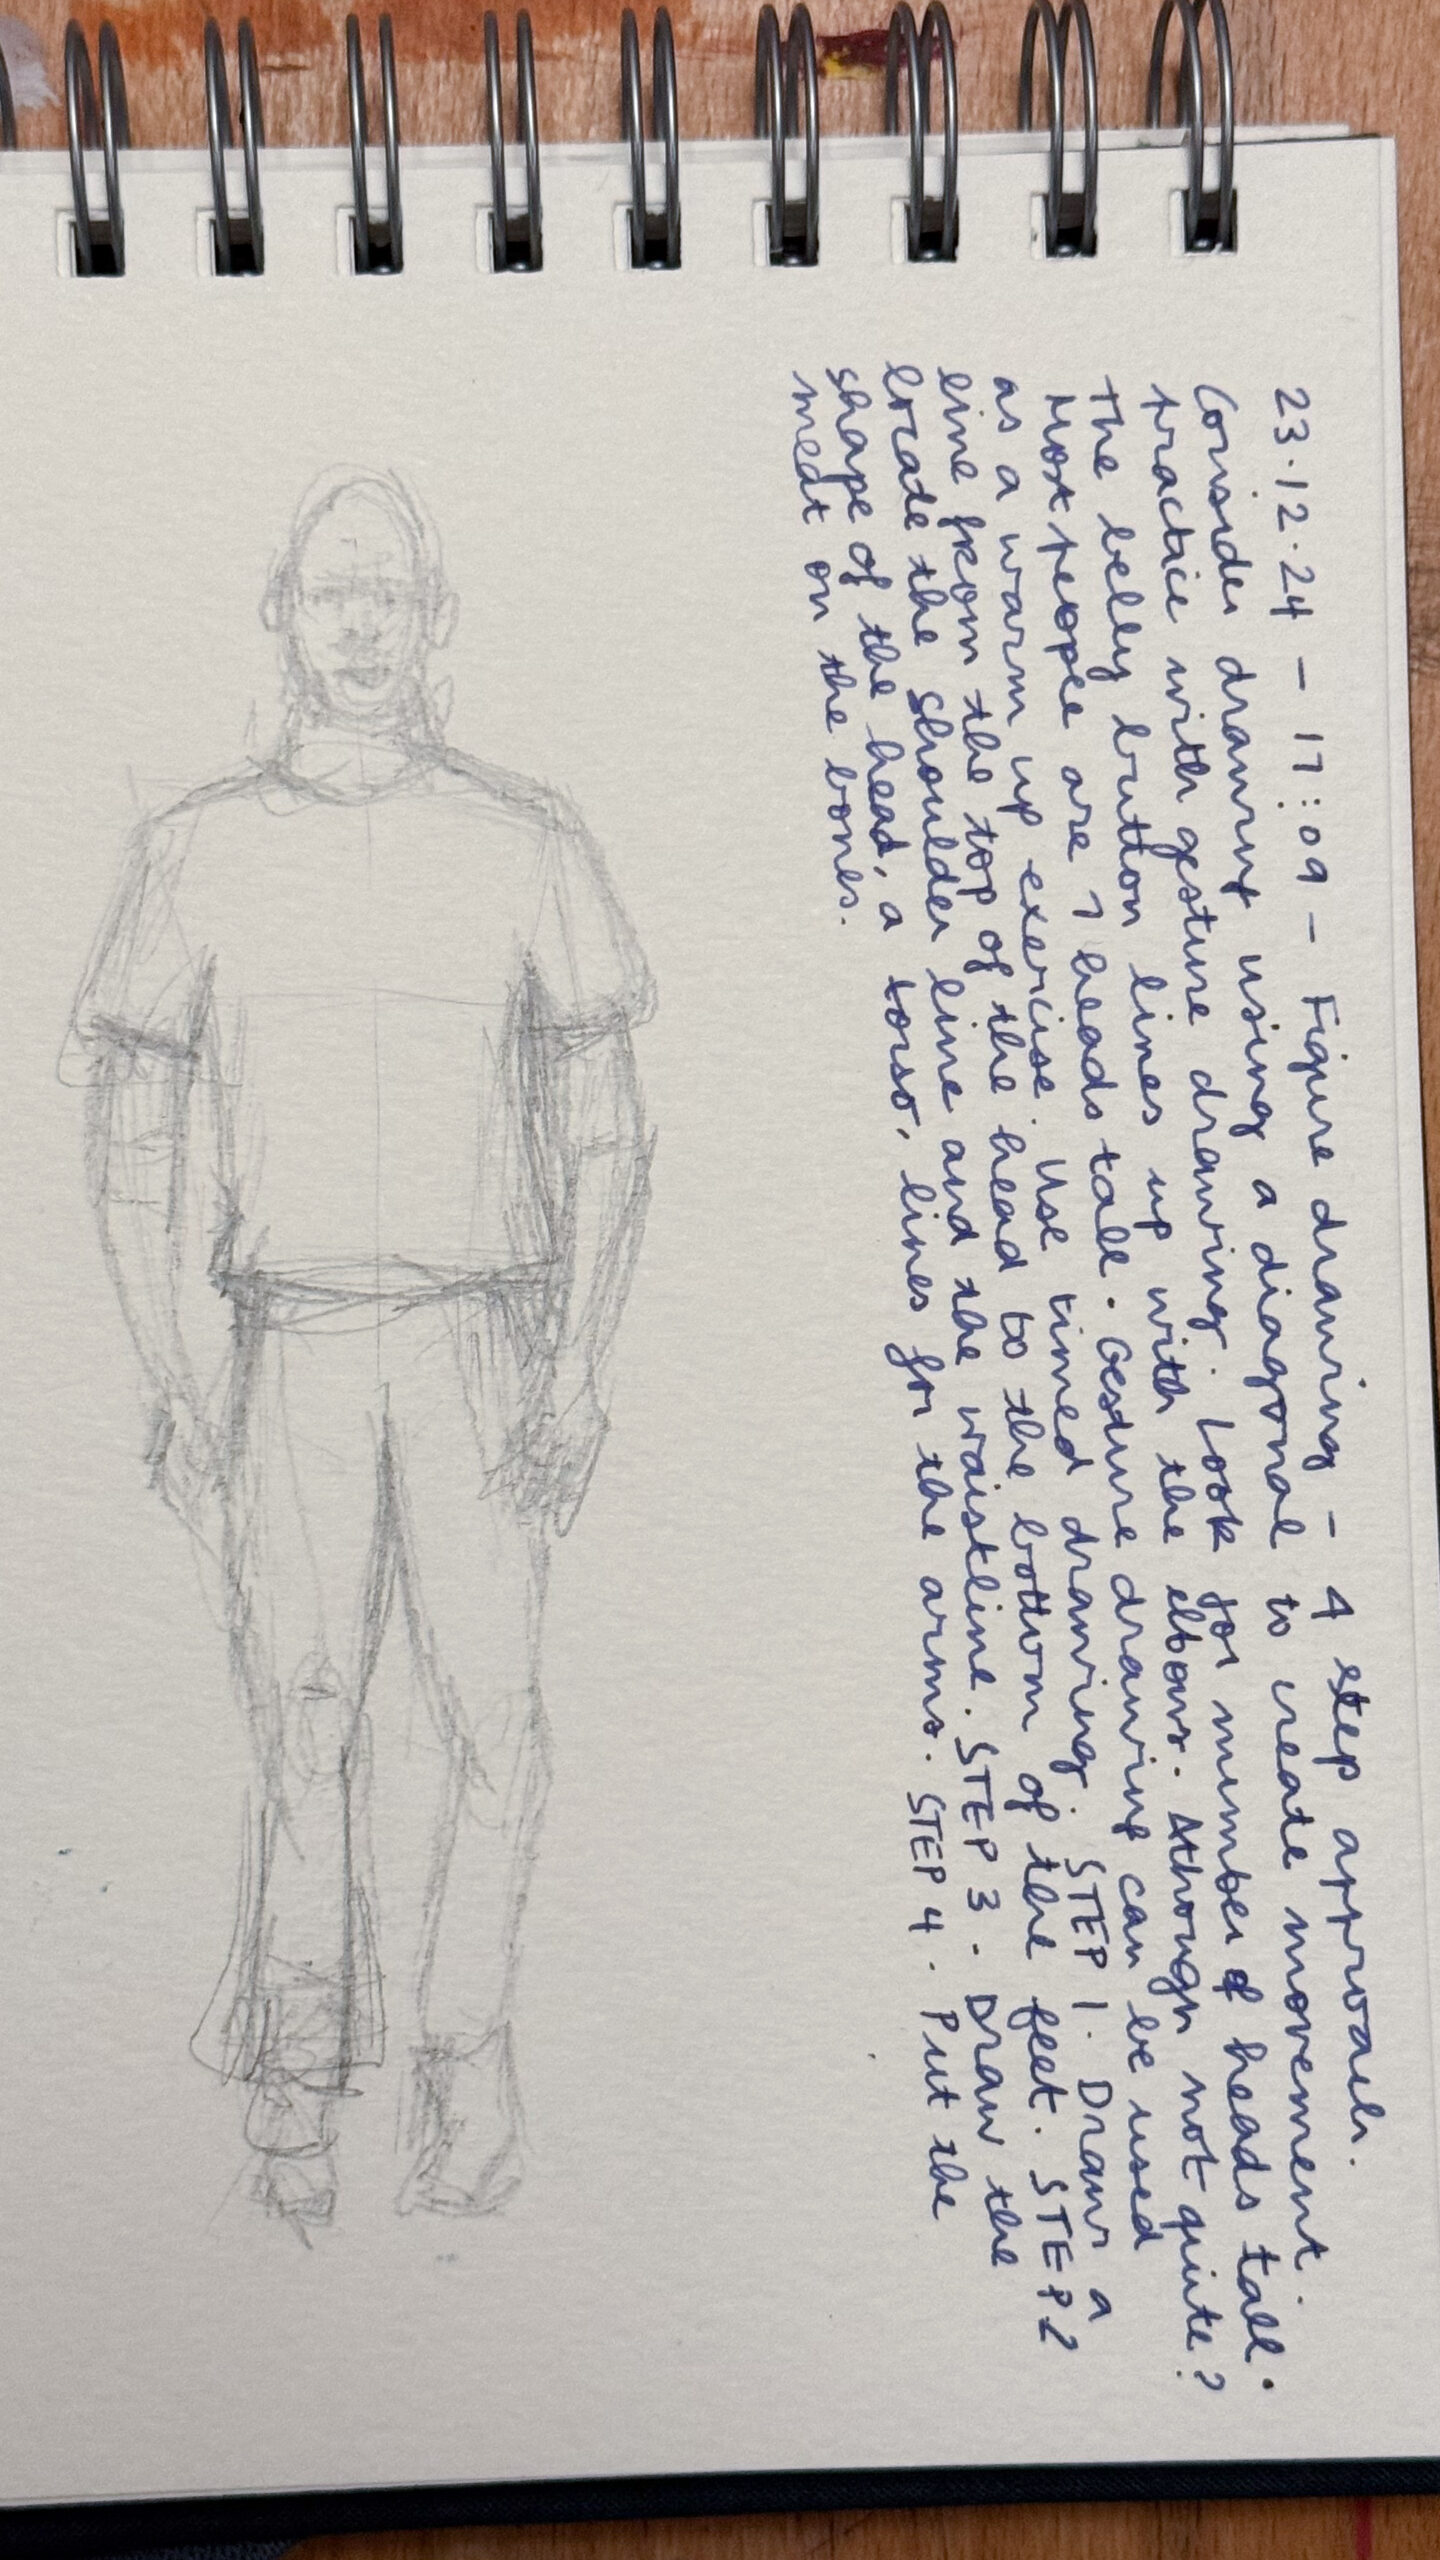 23.12.24 - 17:09 - Figure drawing - 4 step approach.
Consider drawing using a diagonal to create movement.
Practice with gesture drawing. Look for number of heads tall.
The belly button lines up with the elbow. Athough not quite?
Most people are 7 heads tall. Gesture drawing can be used
as a warm up exercise. Use timed drawing. STEP 1. Draw a
line from the top of the head to the bottom of the feet. STEP 2
locate the shoulder line and the waistline. STEP 3. Draw the
shape of the head, a torso, lines for the arms. STEP 4. Put the
meat on the bones.